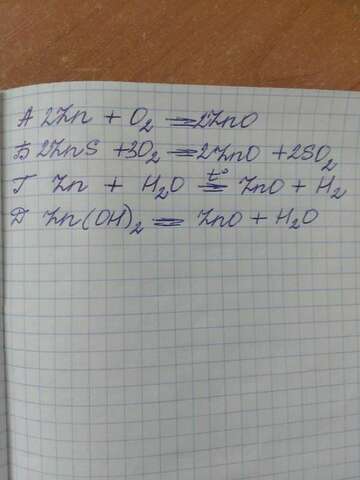 А 2Zn + O₂ = 2ZnO
Б 2ZnS + 3O₂ = 2ZnO + 2SO₂
Г Zn + H₂O =t° ZnO + H₂
Д Zn(OH)₂ = ZnO + H₂O